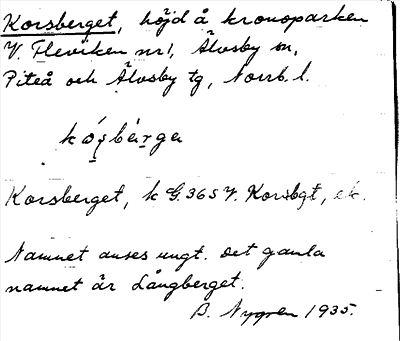 Korsberget, höjd å kronoparken
V. Fleviken nr 1, Älvsby sn,
Piteå och Älvsby tg, Norrb. l.
Korsberget, k G. 365 V. Korsbgt, ek.
Namnet anses ungt. Det gamla
namnet är Långberget.
B. Nygren 1935.